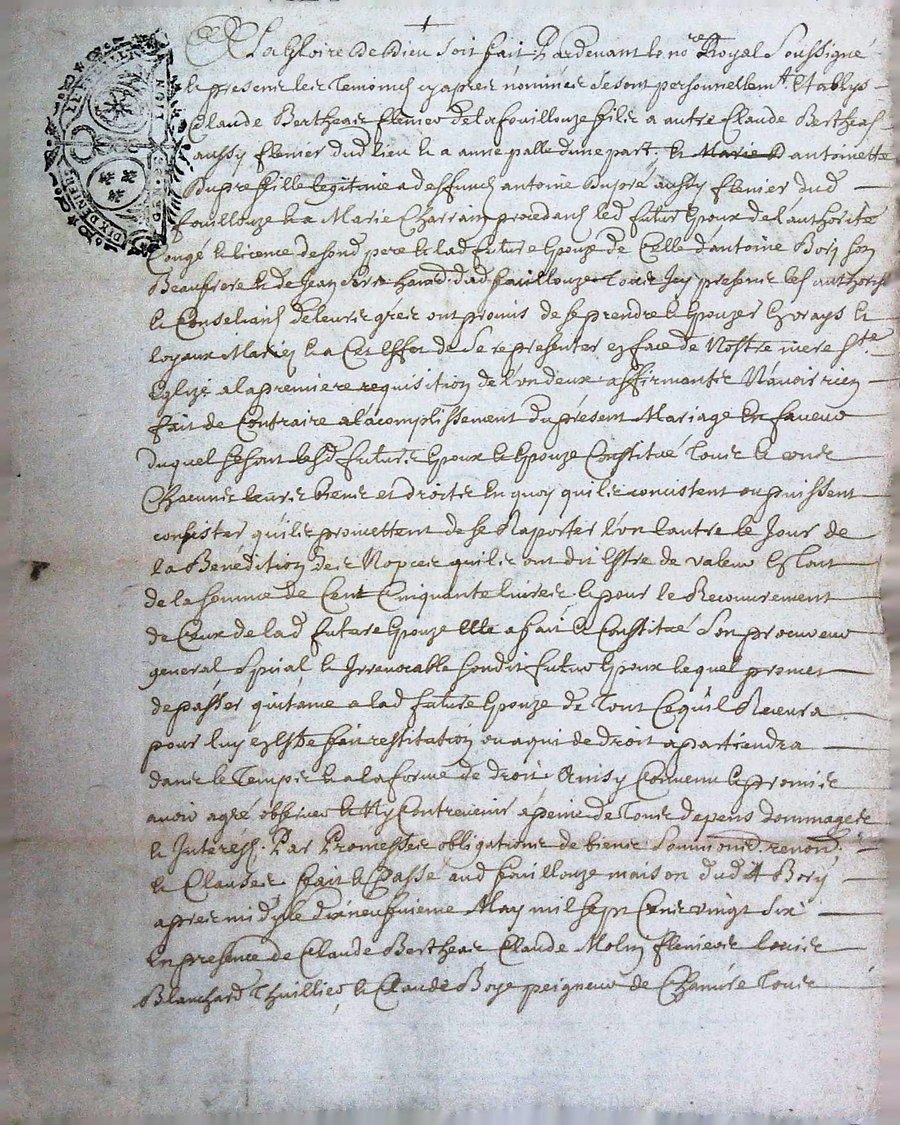 A La Gloire de Dieu soit fait Pardevant le no.re Royal Soussigné
et presents les temoins cy apres nommés se sont personnellem.t Etablys
Claude Bertheas flenier de la fouillouze fils a autre Claude Bertheas
aussy flenier dud lieu et a anne palle dune part, et Marie D antoinette
Dupré fille legitime a deffunct antoine Dupré aussy flenier dud
fouillouze et a Marie Charrain procedans led futur Epoux de l'authorité
Congé et licence desond pere et lad future Epouze de Celle d'antoine Bory son
Beaufrere et de Jean dud fouillouze Tous Icy presents les authorisants
et Conseliants de leurs grés ont promis de se prendre et Epouzer En vrays et
loyaux Mariés et a Cet effet de se representer en face de Nostre mere S.te
Eglize a la premiere requisition de l'on deux affirmants N'avoir rien
fait de Contraire a l'acomplissement du présent Mariage En faveur
duquel se sont lesd futurs Epoux et Epouze Constitué Tous et
Chacuns leurs biens et droits En quoy qu'ils concistent ou puissent
concister qu'ils promettent de se Raporter l'on l'autre le Jour de
la Bénédition des Nopces qu'ils ont dit Estre de valeur En Tout
de la somme de Cent Cinquante livres et pour le Recouvrement
de Ceux de lad future Epouze Elle a fait et Constitué Son procureur
general Special et Irrevocable sondit futur Epoux lequel promet
de passer quitance a lad future Epouze de Tout Ce qu'il Recevra
pour luy En Estre fait restitution ou a qui de droit apartiendra
dans le Temps et a la forme de droit Ainsy Convenu et promis
avoir agré observer et N'y Contrevenir a peine de Tous depens dommages
et Intérests. Par Promesses obligations de biens Soumiond. renond.
et Clauses fait et Passé aud fouillouze maison dud Bory
apres midy le dixneufvieme May mil sept Cents vingt six
En presence de Claude Bertheas Claude Molin fleniers Louis
Blanchard Thuillier, et Claude Boye peigneur de Chanvre Tous
DIX DENIERS
LION